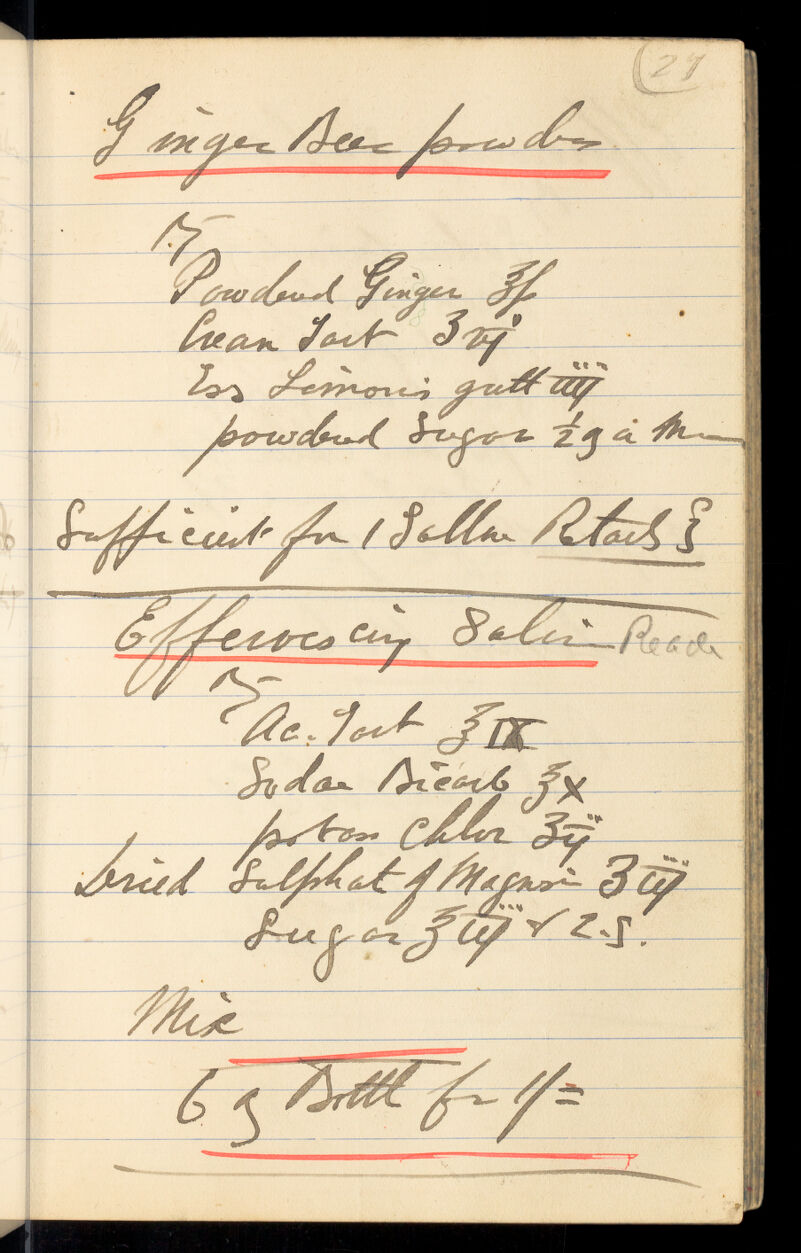 Ginger Beer powder
℞
Powdered Ginger ℥ʃ
Cream Tart ʒ vij
Ess Limonis gutt iiij
powdered Sugar ½
Sufficient for 1 Gallon
Effervescing Salin Reade
℞
Ac. Tart ℥ IX
Sodae Bicarb ℥ X
potass Chlor ʒ ij
Dried Sulphat of Magnesi ʒ iij
Sugar ℥ iij
Mix
6 ℥ Bottl for 1/=